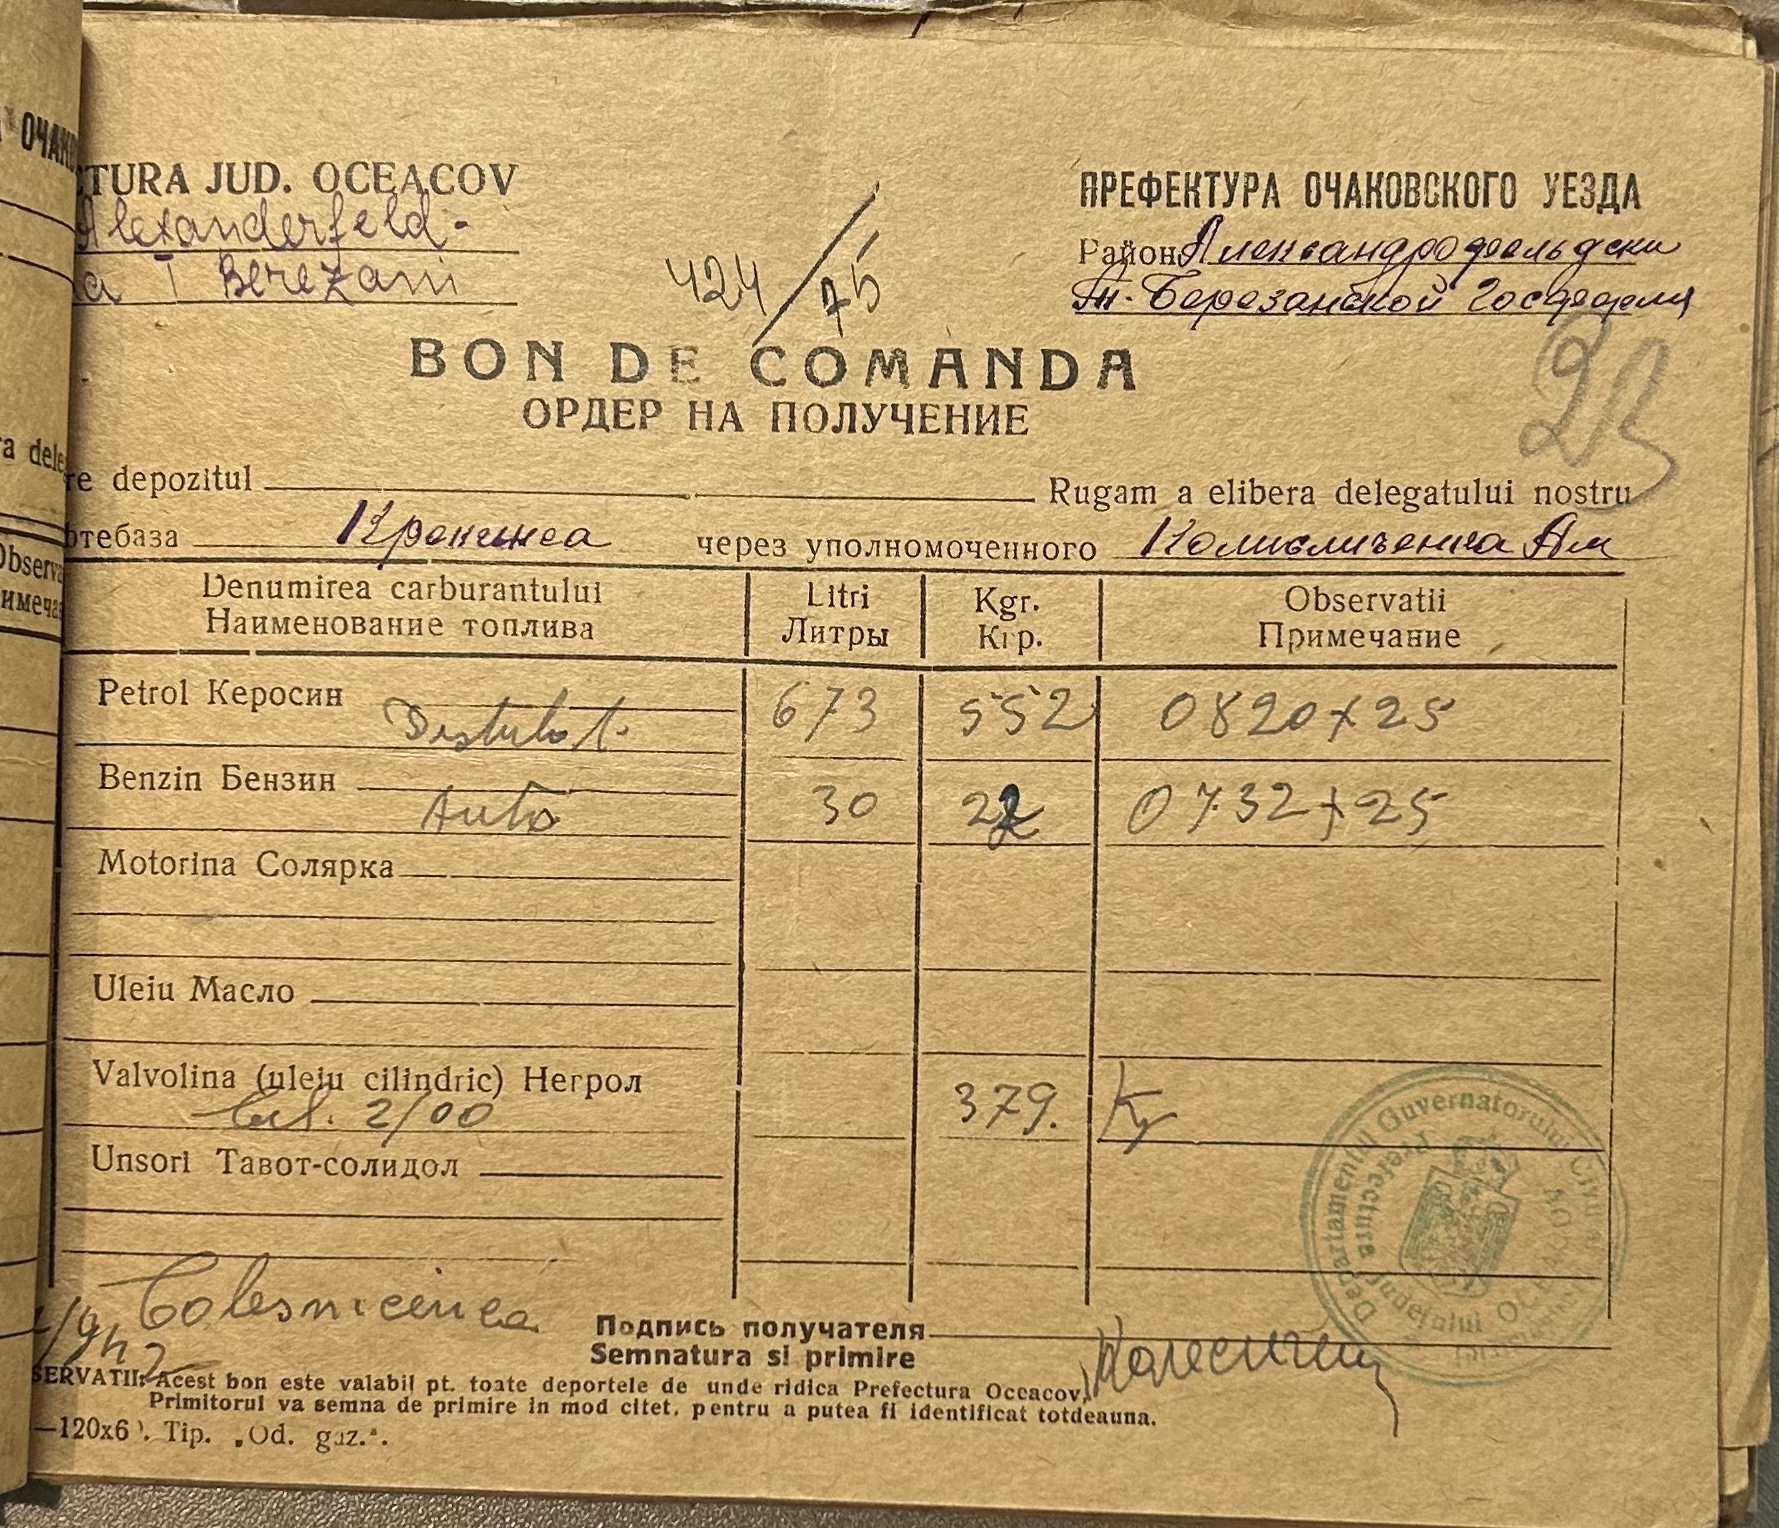 ОЧАК
CTURA JUD. OCEACOV
ПРЕФЕКТУРА ОЧАКОВСКОГО УЕЗДА
Alexanderfeld-
Район Александрофельдски
a T Berezani
Т. Березанской Госферма
424/75
23
BON DE COMANDA
ОРДЕР НА ПОЛУЧЕНИЕ
re depozitul Rugam a elibera delegatului nostru
ртебаза через уполномоченного
Denumirea carburantului Litri Kgr. Observatii
Наименование топлива Литры Кгр. Примечание
Petrol Керосин
Distilat. 673 552 0820 + 25
Benzin Бензин
Auto 30 22 0732 + 25
Motorina Солярка
Uleiu Масло
Valvolina (uleiu cilindric) Негрол
2/00 379. Kg
Unsori Тавот-солидол
Departamentul Guvernatorului Civil
Prefectura Județului OCEACOV
Colesnicenco
Подпись получателя
Semnatura si primire
942
SERVATII: Acest bon este valabil pt. toate deportele de unde ridica Prefectura Occacov,
Primitorul va semna de primire in mod citet, pentru a putea fi identificat totdeauna.
—120x6 . Tip. „Od. gaz.“.